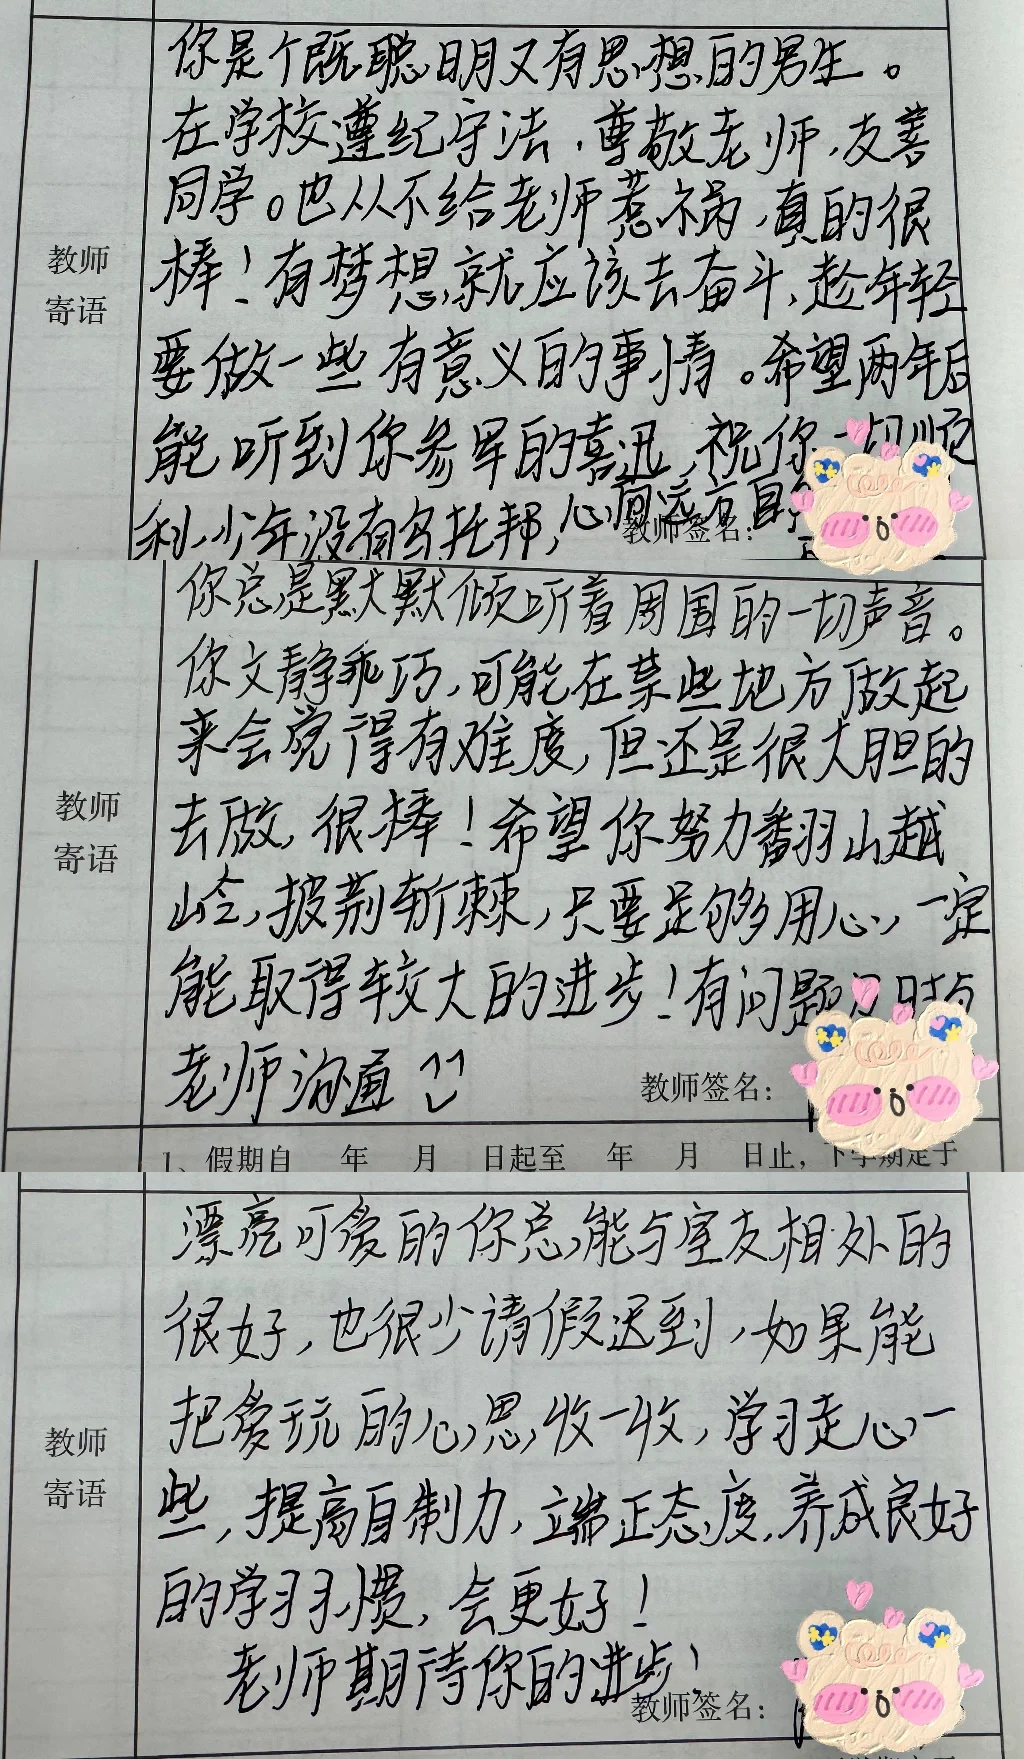 你是个既聪明又有思想的男生。
在学校遵纪守法，尊敬老师，友善
同学。也从不给老师惹祸，真的很
棒！有梦想，就应该去奋斗，趁年轻
教师
寄语
要做一些有意义的事情。希望两年后
能听到你参军的喜迅，祝你一切顺
利，少年没有乌托邦，心向远方自
教师签名：
你总是默默倾听着周围的一切声音。
你文静乖巧，可能在某些地方做起
来会觉得有难度，但还是很大胆的
教师
寄语
去做，很棒！希望你努力翻山越
岭，披荆斩棘，只要足够用心，一定
能取得较大的进步！有问题及时与
老师沟通
教师签名：
1、假期自 年 月 日起至 年 月 日止，下学期定于
漂亮可爱的你总能与室友相处的
很好，也很少请假迟到，如果能
把爱玩的心思收一收，学习走心一
教师
寄语
些，提高自制力，端正态度，养成良好
的学习习惯，会更好！
老师期待你的进步！
教师签名：